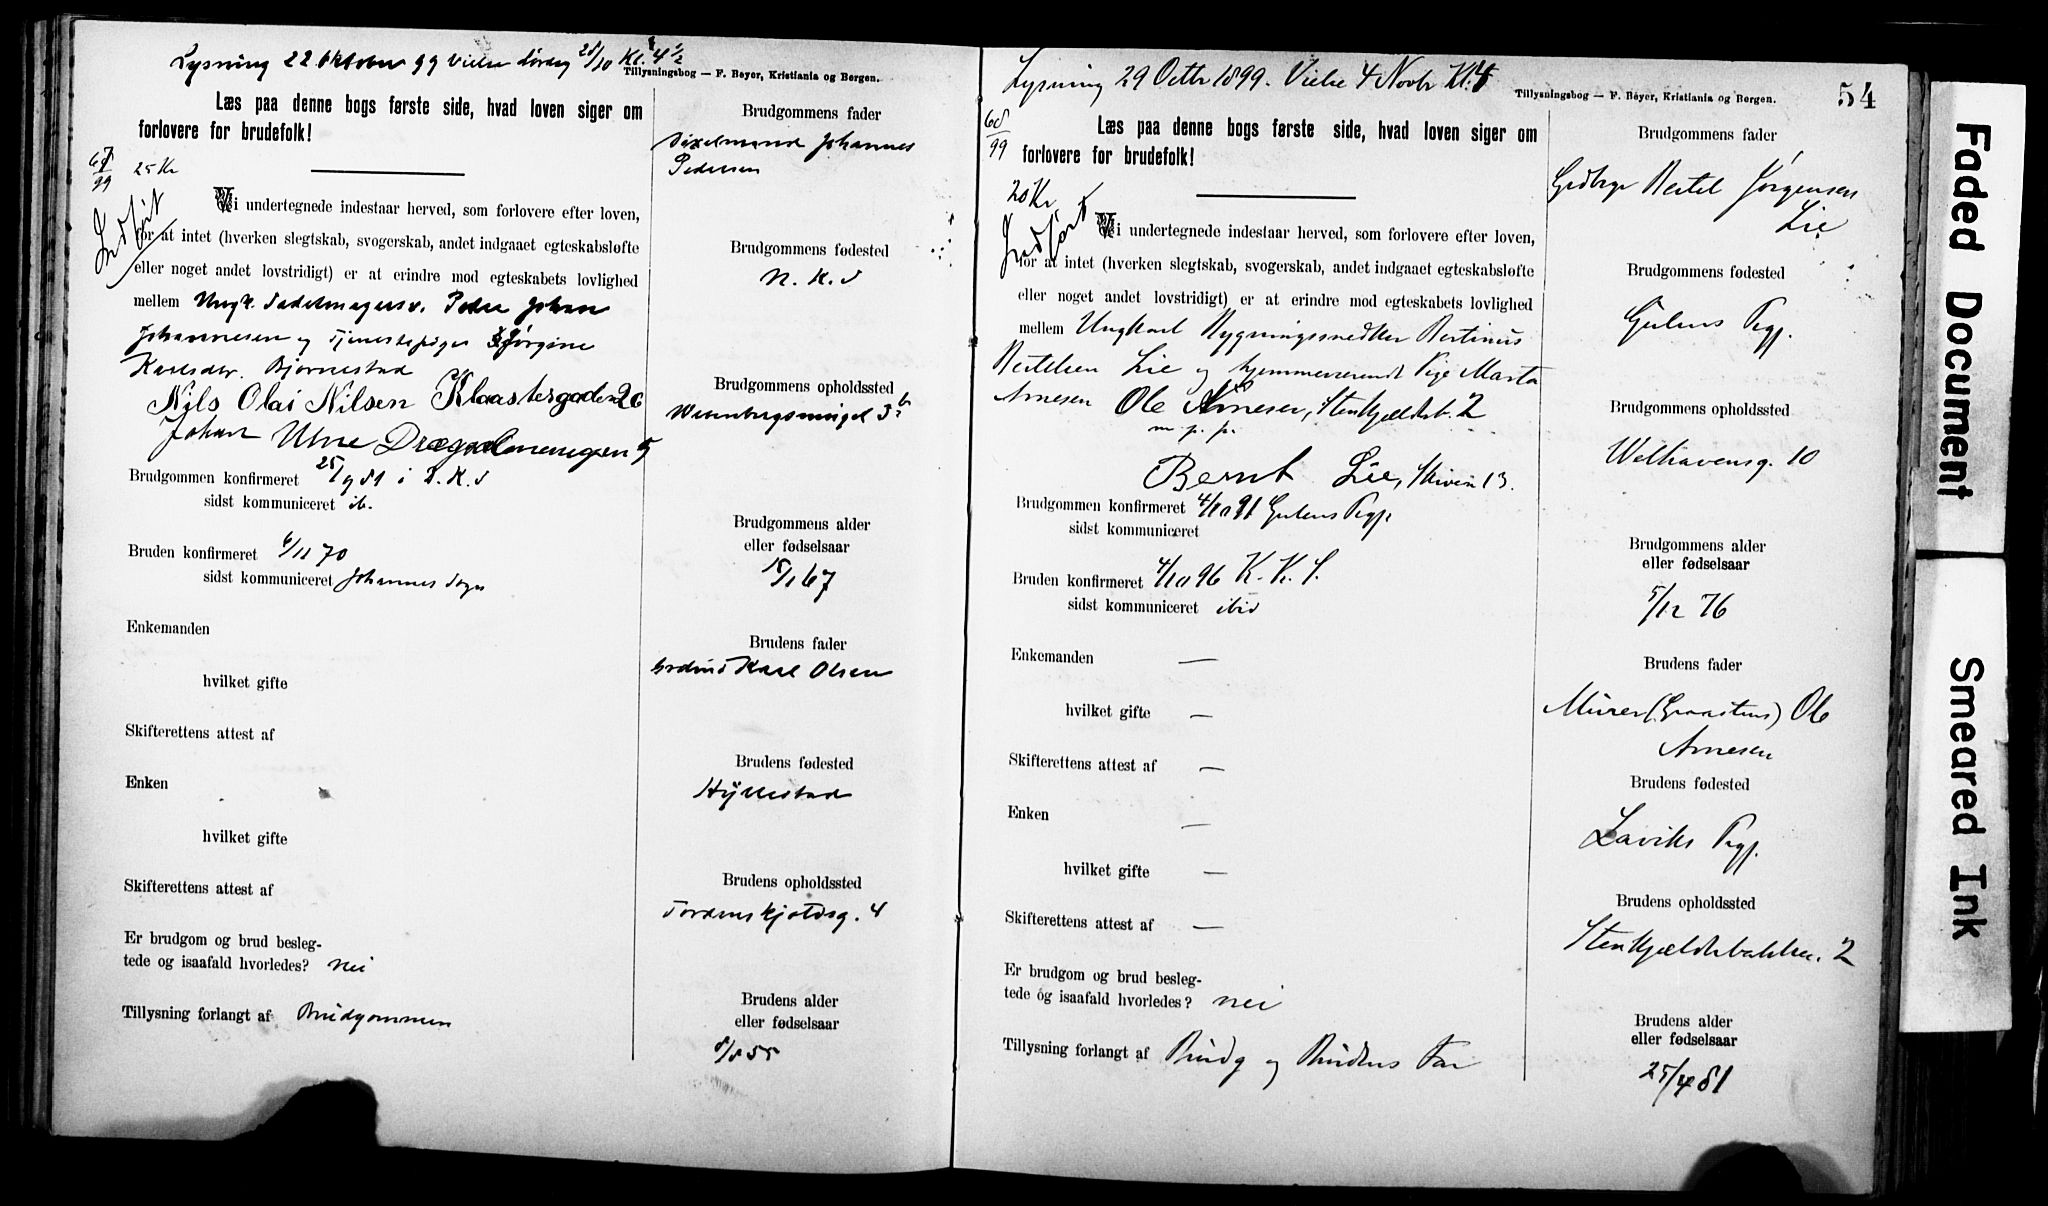 Lysning 22 Oktober 99 Vielse Lørdag 28/10 Kl. 4 1/2
Tillysningsbog — F. Beyer, Kristiania og Bergen.
Læs paa denne bogs første side, hvad loven siger om
forlovere for brudefolk!
67/99 25 Kr
Indført
Vi undertegnede indestaar herved, som forlovere efter loven,
for at intet (hverken slegtskab, svogerskab, andet indgaaet egteskabsløfte
eller noget andet lovstridigt) er at erindre mod egteskabets lovlighed
mellem Ungk. Sadelmagersv. Peder Johan
Johannesen og Tjenestepige Jørgine
Karlsdtr. Bjørnestad
Nils Olai Nilsen Klaastergaden 26
Johan Utne Drægealmenigen 5
Brudgommen konfirmeret 25/9 81 i D.K.S
sidst kommuniceret ib.
Bruden konfirmeret 6/11 70
sidst kommuniceret Johannes Sogn
Enkemanden
hvilket gifte
Skifterettens attest af
Enken
hvilket gifte
Skifterettens attest af
Er brudgom og brud besleg-
tede og isaafald hvorledes? nei
Tillysning forlangt af Brudgommen
Brudgommens fader
Johannes
Pedersen
Brudgommens fødested
N.K.S
Brudgommens opholdssted
Brudgommens alder
eller fødselsaar
18/1 67
Brudens fader
Grdmd Karl Olsen
Brudens fødested
Hyllestad
Brudens opholdssted
Tordenskjoldsg. 4
Brudens alder
eller fødselsaar
8/8 55
Lysning 29 Octbr 1899. Vielse 4 Novbr Kl. 4
Tillysningsbog — F. Beyer, Kristiania og Bergen.
54
68/99
Læs paa denne bogs første side, hvad loven siger om
forlovere for brudefolk!
20 Kr.
Indført
Vi undertegnede indestaar herved, som forlovere efter loven,
for at intet (hverken slegtskab, svogerskab, andet indgaaet egteskabsløfte
eller noget andet lovstridigt) er at erindre mod egteskabets lovlighed
mellem Ungkarl Bygningssnedker Bertinus
Bertelsen Lie og hjemmeværende Pige Marta
Arnesen Ole Arnesen, Stenkjældeb. 2
m. p. p.
Bernt Lie, Skiven 13.
Brudgommen konfirmeret 4/10 91 Gulens Prgj.
sidst kommuniceret
Bruden konfirmeret 4/10 96 K. K. S.
sidst kommuniceret ibid
Enkemanden —
hvilket gifte —
Skifterettens attest af —
Enken —
hvilket gifte —
Skifterettens attest af —
Er brudgom og brud besleg-
tede og isaafald hvorledes? nei
Tillysning forlangt af Brudg og Brudens Far
Brudgommens fader
Bertel Jørgensen
Lie
Brudgommens fødested
Gulens Prgj.
Brudgommens opholdssted
Welhavensg. 10
Brudgommens alder
eller fødselsaar
5/12 76
Brudens fader
Murer (Graastens) Ole
Arnesen
Brudens fødested
Laviks Prgj.
Brudens opholdssted
Stenkjældebakken. 2
Brudens alder
eller fødselsaar
25/4 81
Faded Document
Smeared Ink